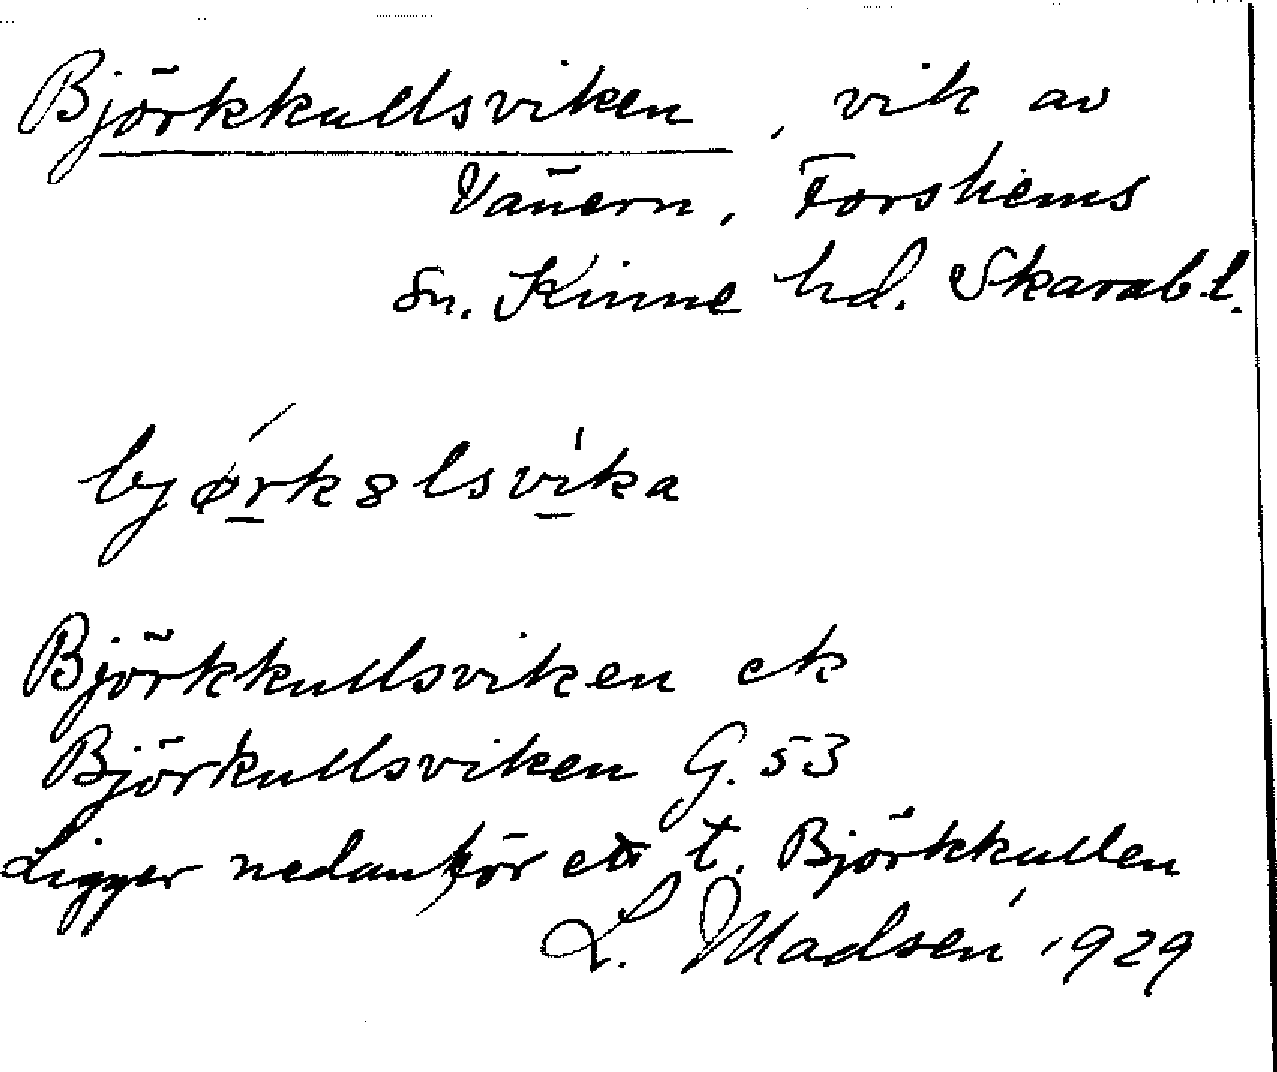 Björkkullsviken, vik av
Vänern, Forshems
sn. Kinne hd. Skarab.l.
bjørk8lsvika
Björkkullsviken ek
Björkullsviken G. 53
Ligger nedanför t. Björkkullen
L. Madsén 1929